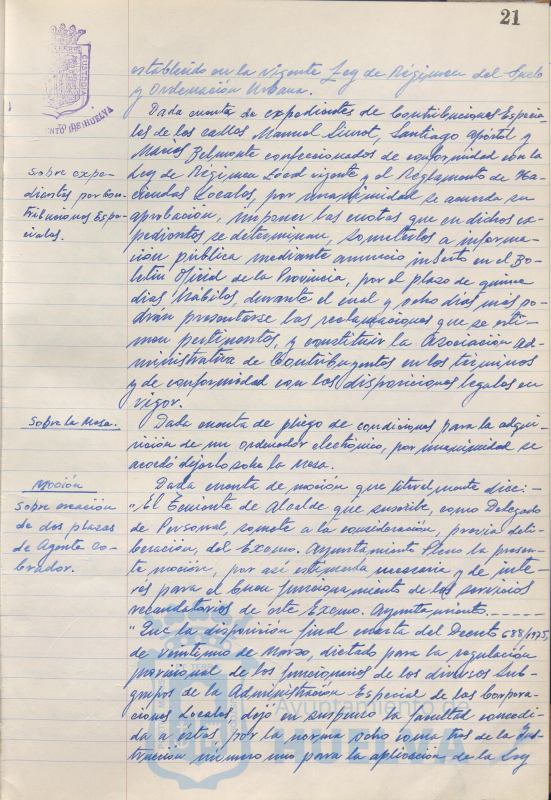 21
CUSTODIA
AYUNTAMIENTO DE HUELVA
establecido en la vigente Ley de Régimen del Suelo
y Ordenación Urbana.
Dada cuenta de expedientes de Contribuciones Especia-
les de las calles Manuel Siurot, Santiago Apóstol y
Marcos Belmonte confeccionados de conformidad con la
Sobre expe-
dientes por Con-
tribuciones Espe-
ciales.
Ley de Régimen Local vigente y el Reglamento de Ha-
ciendas Locales, por unanimidad se acuerda su
aprobación, imponer las cuotas que en dichos ex-
pedientes se determinan, someterlos a informa-
ción pública mediante anuncio inserto en el Bo-
letín Oficial de la Provincia, por el plazo de quince
días hábiles, durante el cual y ocho días más po-
drán presentarse las reclamaciones que se esti-
men pertinentes, y constituir la Asociación Ad-
ministrativa de Contribuyentes en los términos
y de conformidad con las disposiciones legales en
vigor.
Sobre la Mesa.
Dada cuenta de pliego de condiciones para la adqui-
sición de un ordenador electrónico, por unanimidad se
acordó dejarlo sobre la Mesa.
Moción
sobre creación
de dos plazas
de Agente Co-
brador.
Dada cuenta de moción que literalmente dice:-
"El Teniente de Alcalde que suscribe, como Delegado
de Personal, somete a la consideración, previa deli-
beración, del Excmo. Ayuntamiento Pleno la presen-
te moción, por así estimarla necesaria y de inte-
rés para el buen funcionamiento de los servicios
recaudatorios de este Excmo. Ayuntamiento.------
"Que la disposición final cuarta del Decreto 688/1975,
de veintiuno de Marzo, dictado para la regulación
provisional de los funcionarios de los diversos Sub-
grupos de la Administración Especial de las Corpora-
ciones Locales dejó en suspenso la facultad concedi-
da a estas por la norma ocho coma tres de la Ins-
trucción número uno para la aplicación de la Ley
Ayuntamiento de
HUELVA